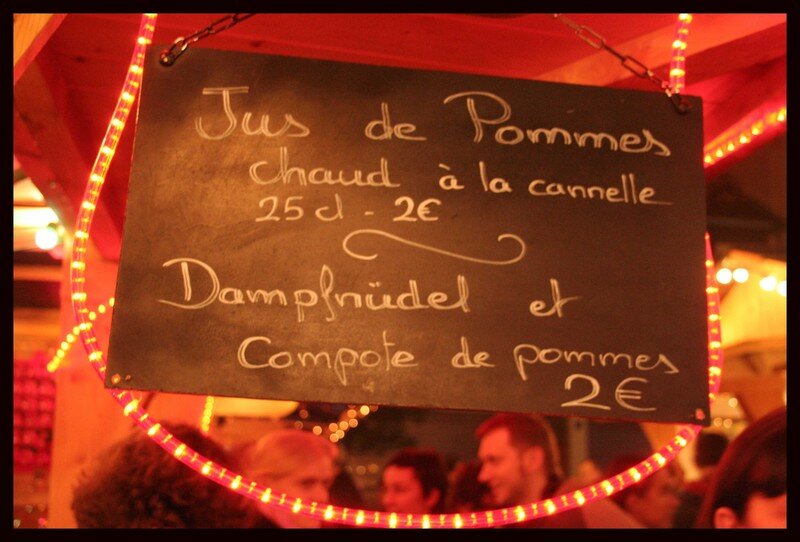 Jus de Pommes
chaud à la cannelle
25 cl - 2€
Dampfnüdel et
Compote de pommes
2€